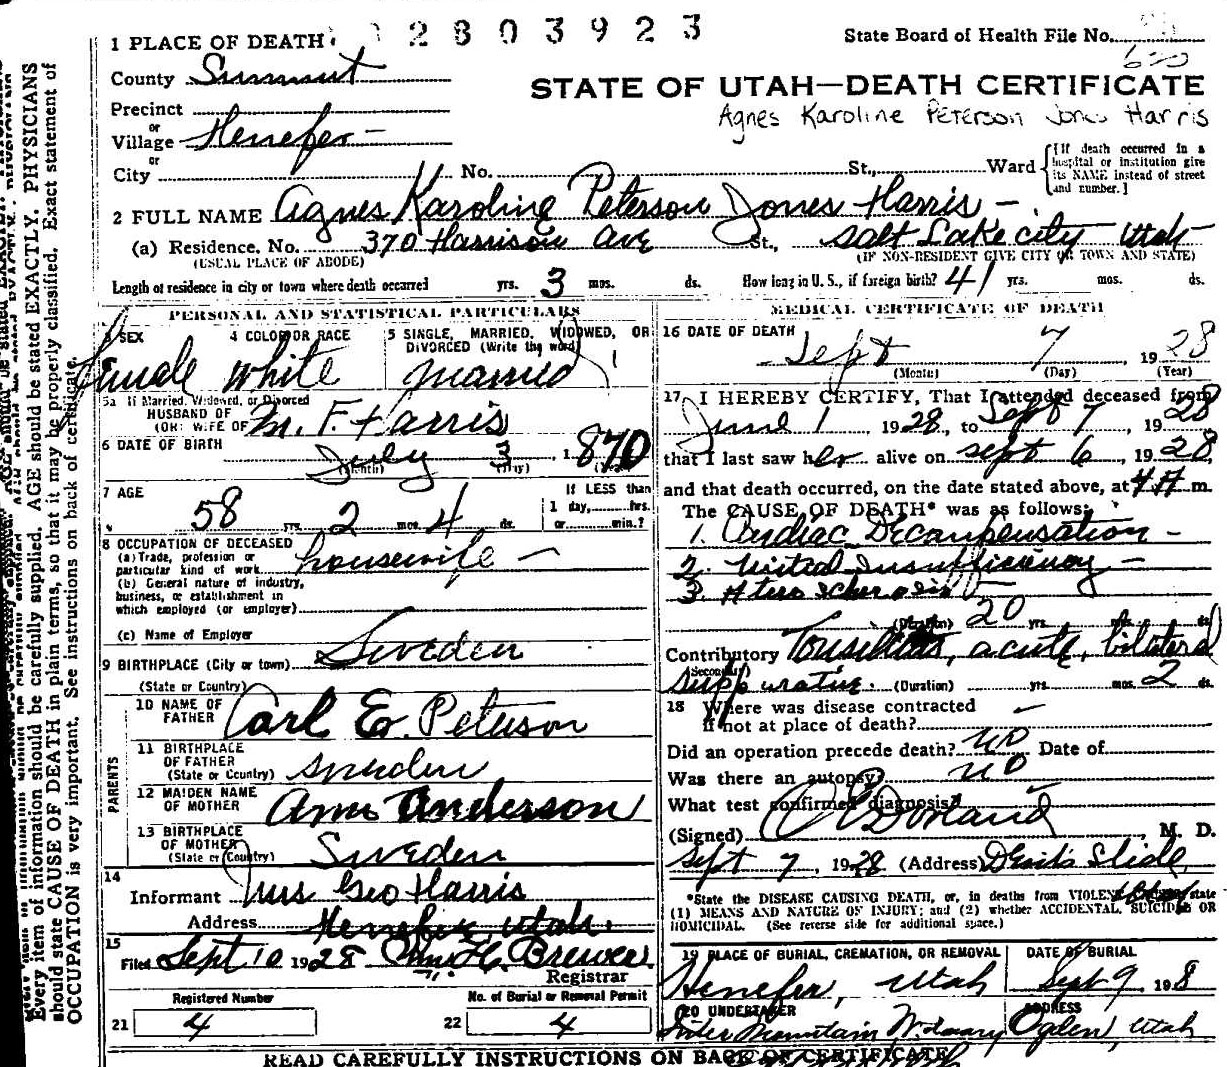 2803923
State Board of Health File No.
620
STATE OF UTAH—DEATH CERTIFICATE
Agnes Karoline Peterson Jones Harris
1 PLACE OF DEATH
County Summit
Precinct
or
Village Henefer—
or
City No. St., Ward
[If death occurred in a hospital or institution give its NAME instead of street and number.]
2 FULL NAME Agnes Karoline Peterson Jones Harris—
(a) Residence. No. 370 Harrison Ave St., Salt Lake City Utah
(USUAL PLACE OF ABODE) (IF NON-RESIDENT GIVE CITY OR TOWN AND STATE)
Length of residence in city or town where death occurred yrs. 3 mos. ds. How long in U. S., if foreign birth? 41 yrs. mos. ds.
PERSONAL AND STATISTICAL PARTICULARS
3 SEX 4 COLOR OR RACE 5 SINGLE, MARRIED, WIDOWED, OR DIVORCED (Write the word)
Female White Married
5a If Married, Widowed, or Divorced
HUSBAND OF
(OR) WIFE OF M. F. Harris
6 DATE OF BIRTH July 3, 1870
(Month) (Day) (Year)
7 AGE If LESS than
58 yrs. 2 mos. 4 ds. 1 day, hrs. or min.?
8 OCCUPATION OF DECEASED
(a) Trade, profession or particular kind of work housewife—
(b) General nature of industry, business, or establishment in which employed (or employer)
(c) Name of Employer
9 BIRTHPLACE (City or town) Sweden
(State or Country)
PARENTS
10 NAME OF FATHER Carl E. Peterson
11 BIRTHPLACE OF FATHER (State or Country) Sweden
12 MAIDEN NAME OF MOTHER Ann Anderson
13 BIRTHPLACE OF MOTHER (State or Country) Sweden
14
Informant Mrs Geo Harris
Address Henefer, Utah.
15
Filed Sept 10 1928 Wm. H. Brewer
Registrar
Registered Number No. of Burial or Removal Permit
21 4 22 4
MEDICAL CERTIFICATE OF DEATH
16 DATE OF DEATH
Sept 7 1928
(Month) (Day) (Year)
17 I HEREBY CERTIFY, That I attended deceased from
June 1 1928, to Sept 7, 1928
that I last saw her alive on Sept 6, 1928,
and that death occurred, on the date stated above, at 4 A m.
The CAUSE OF DEATH* was as follows:
1. Cardiac Decompensation—
2. Mitral Insufficiency—
3. Aterosclerosis—
(Duration) 20 yrs. mos. ds.
Contributory Tonsilitis, acute, bilateral
(Secondary)
suppurative. (Duration) yrs. mos. 2 ds.
18 Where was disease contracted
if not at place of death? —
Did an operation precede death? no Date of
Was there an autopsy? no
What test confirmed diagnosis?
(Signed) , M. D.
Sept 7, 1928 (Address) Devil's Slide,
Utah
*State the DISEASE CAUSING DEATH, or, in deaths from VIOLENT CAUSES, state
(1) MEANS AND NATURE OF INJURY; and (2) whether ACCIDENTAL, SUICIDAL OR
HOMICIDAL. (See reverse side for additional space.)
19 PLACE OF BURIAL, CREMATION, OR REMOVAL DATE OF BURIAL
Henefer, Utah Sept 9 1928
20 UNDERTAKER ADDRESS
Inter Mountain Ogden, Utah
READ CAREFULLY INSTRUCTIONS ON BACK OF CERTIFICATE
Every item of information should be carefully supplied. AGE should be stated EXACTLY. PHYSICIANS
should state CAUSE OF DEATH in plain terms, so that it may be properly classified. Exact statement of
OCCUPATION is very important. See instructions on back of certificate.